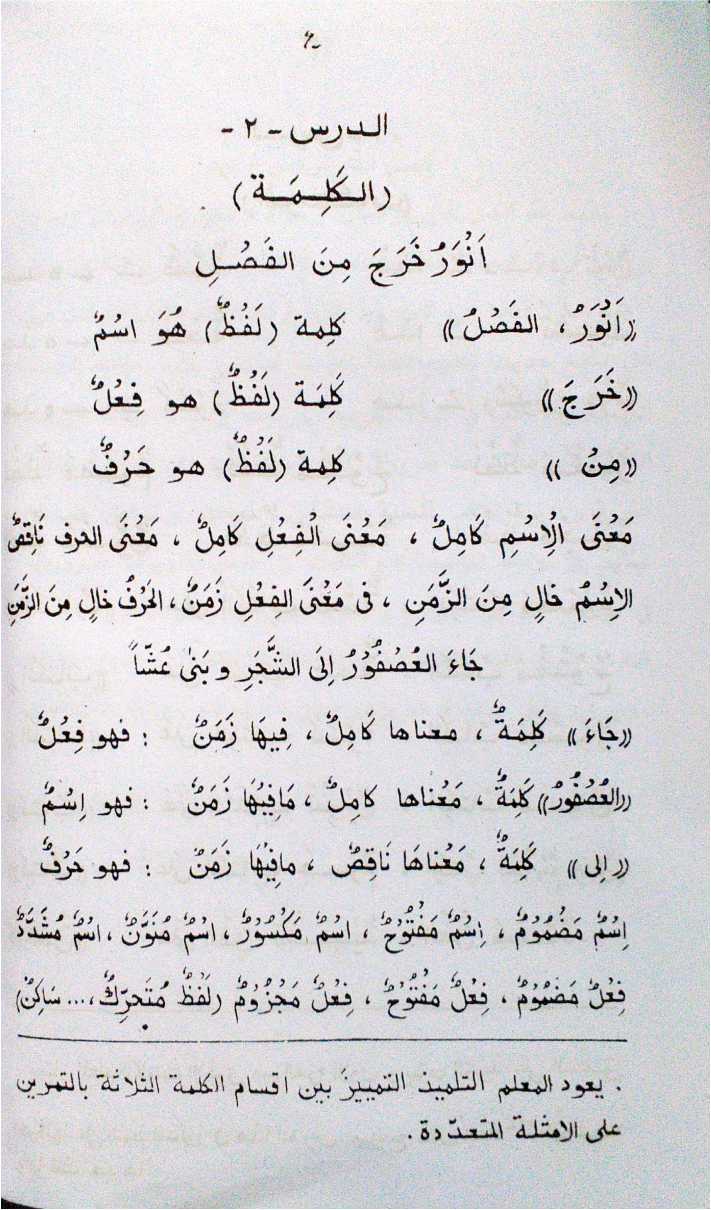 الدرس - ٢ -
(الكَلِمَة)
اَنْوَرُ خَرَجَ مِنَ الفَصْلِ
«اَنْوَرُ، الفَصْلُ» كَلِمة (لَفْظٌ) هُوَ اسْمٌ
«خَرَجَ» كَلِمَة (لَفْظٌ) هو فِعْلٌ
«مِنْ» كَلِمة (لَفْظٌ) هو حَرْفٌ
مَعْنَى الْاِسْمِ كَامِلٌ ، مَعْنَى الْفِعْلِ كَامِلٌ ، مَعْنَى الحرف نَاقِصٌ
الاِسْمُ خالٍ مِنَ الزَّمَنِ ، فى مَعْنَى الفِعْلِ زَمَنٌ ، الحَرْفُ خالٍ مِنَ الزَّمَنِ
جَاءَ العُصْفُوْرُ اِلَى الشَّجَرِ و بَنىٰ عُشّاً
«جَاءَ» كَلِمَةٌ ، معناها كَامِلٌ ، فِيهَا زَمَنٌ : فهو فِعْلٌ
«العُصْفُوْرُ» كَلِمَةٌ ، مَعْناها كامِلٌ ، مَافِيْهَا زَمَنٌ : فهو اِسْمٌ
«اِلى» كَلِمَةٌ ، مَعْناهَا نَاقِصٌ ، مافِيْهَا زَمَنٌ : فهو حَرْفٌ
اِسْمٌ مَضْمُوْمٌ ، اِسْمٌ مَفْتُوْحٌ ، اسْمٌ مَكْسُوْرٌ ، اسْمٌ مُنَوَّنٌ ، اسْمٌ مُشَدَّدٌ
فِعْلٌ مَضْمُوْمٌ ، فِعْلٌ مَفْتُوْحٌ ، فِعْلٌ مَجْزُوْمٌ (لَفْظٌ مُتَحَرِّكٌ،... سَاكِنٌ)
. يعود المعلم التلميذ التمييزَ بين اقسام الكلمة الثلاثة بالتمرين
على الامثلة المتعدّدة .